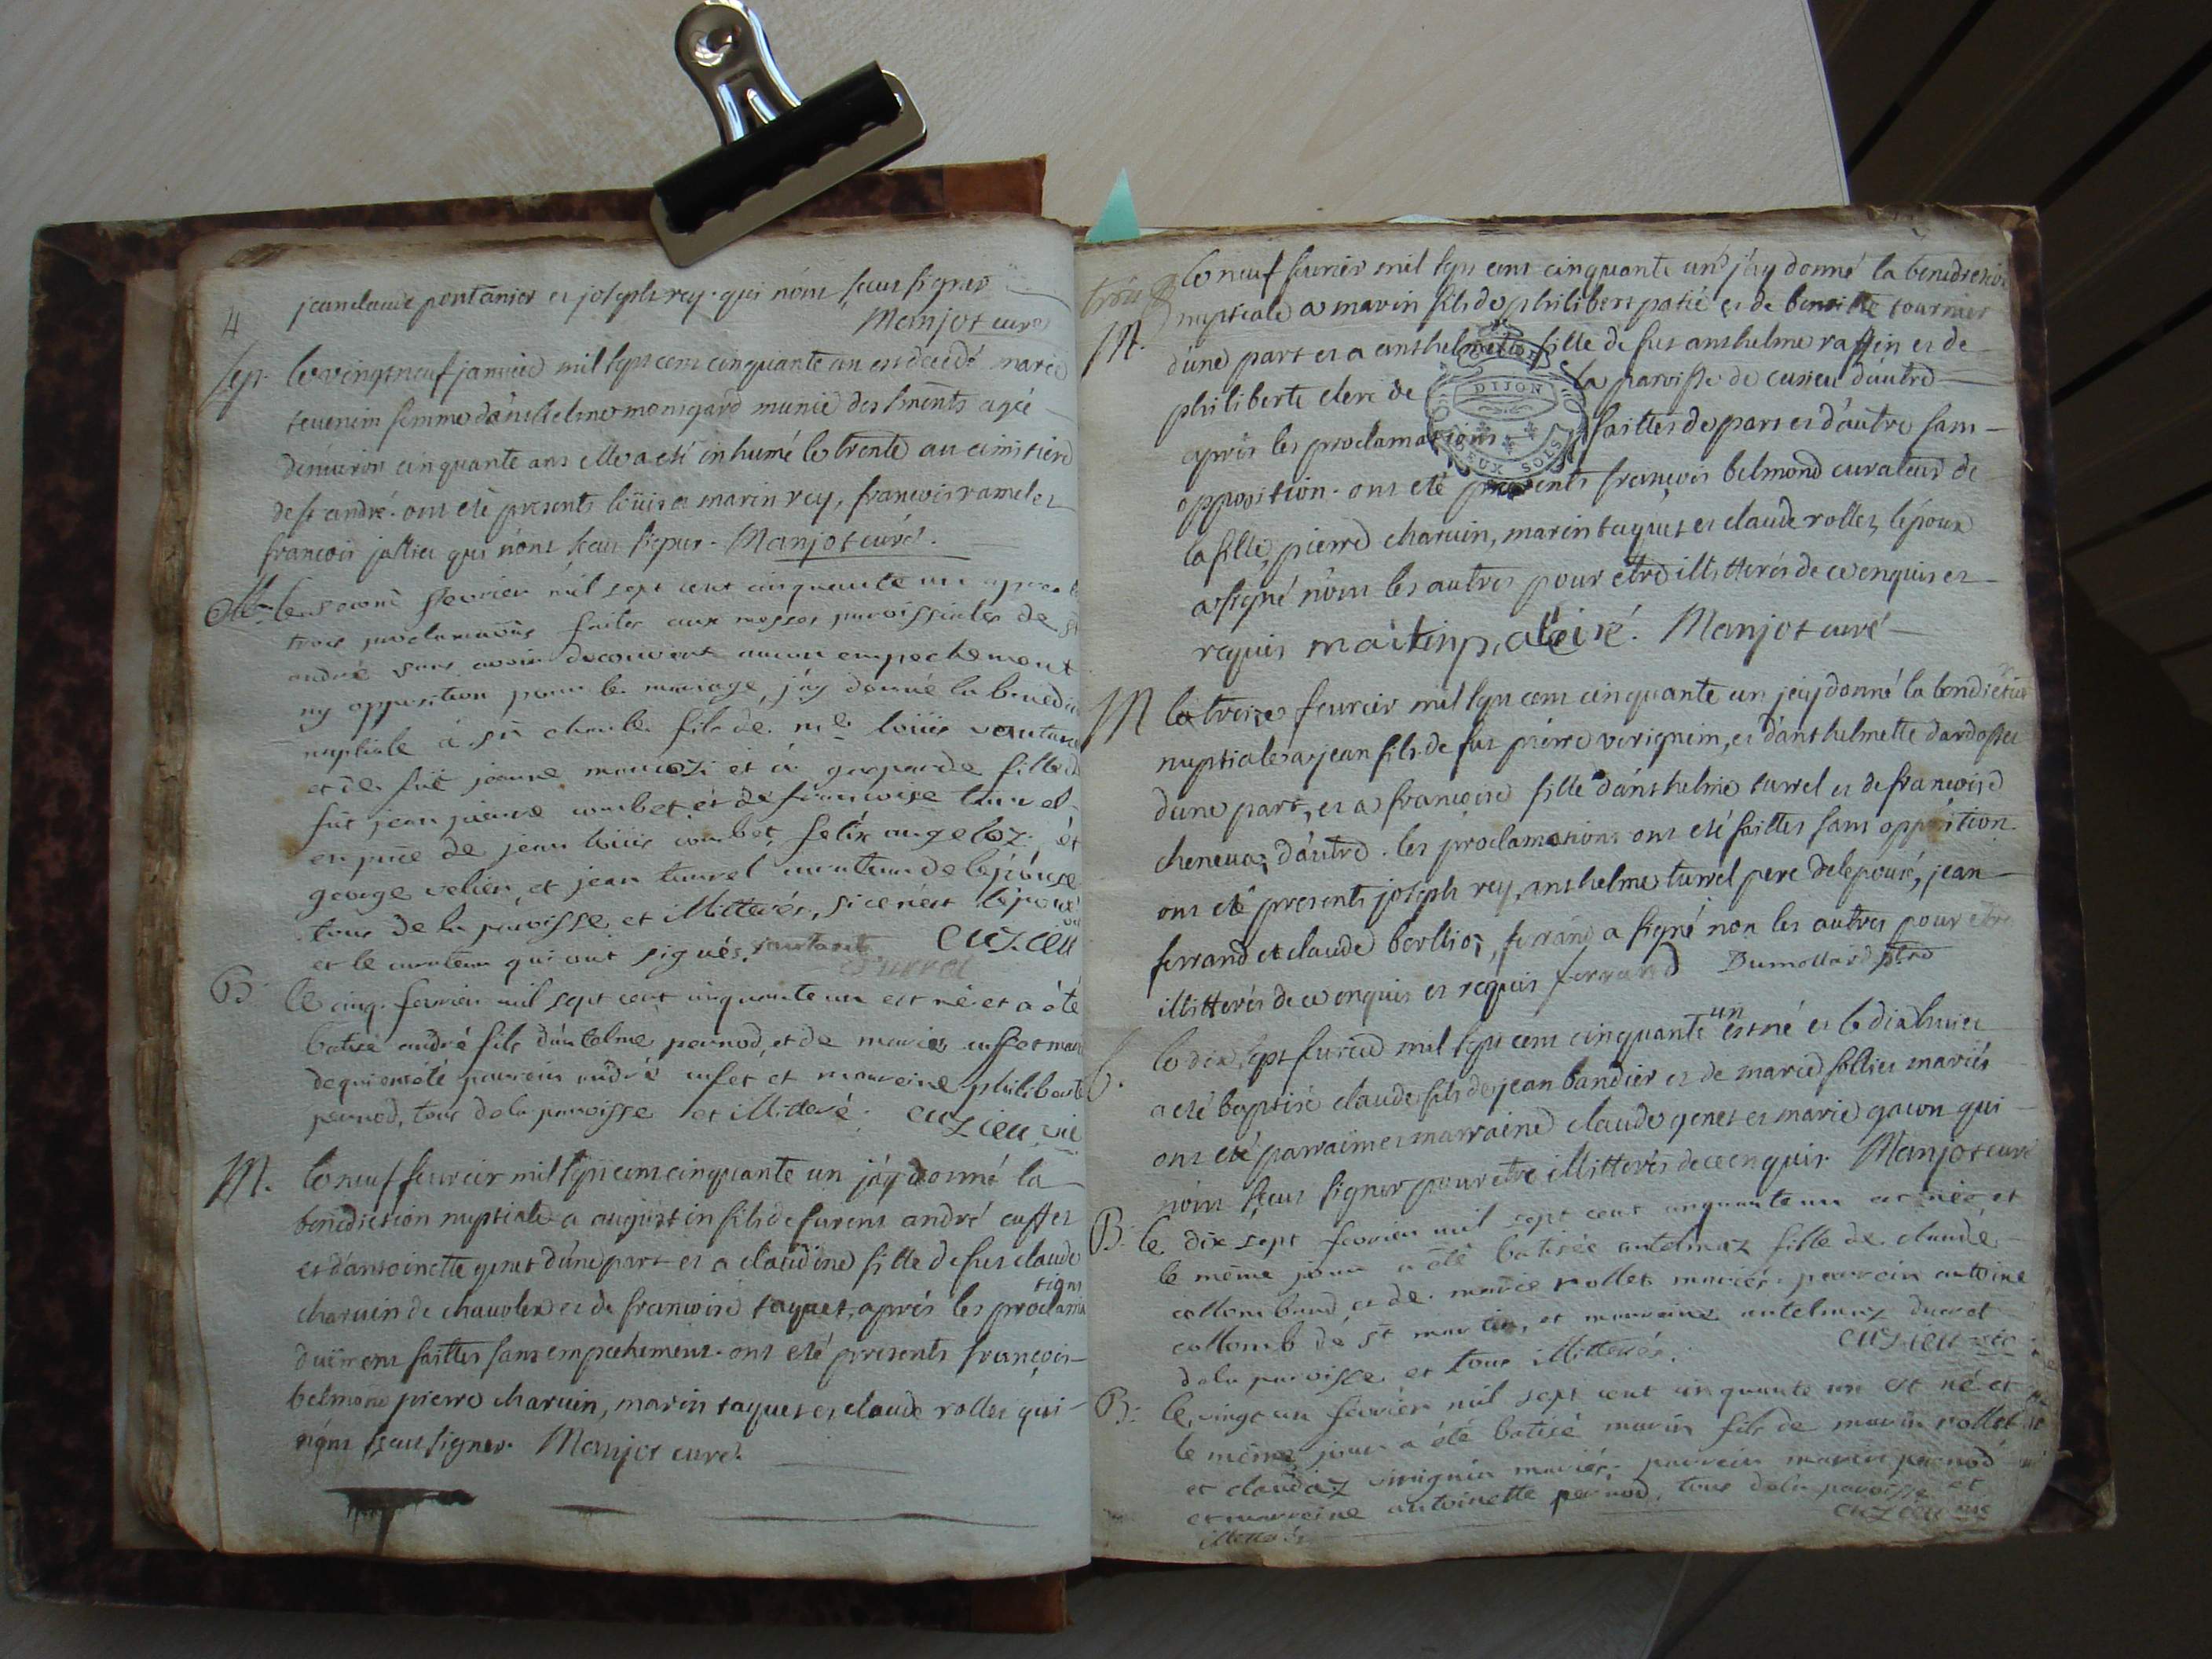 4
jeanclaude pontanier et joseph rey qui nónt sceus signer
Manjot curé
Sep. le vingt neuf janvier mil sept cent cinquante un est decedé marie
femme danthelme monigard munie des agée
denviron cinquante ans elle a eté inhumé le trente au cimitiere
de st andré. ont eté presents loüis a marin rey, francois ramel et
francois jallier qui nónt sceus signer. Manjot curé.
M. le second fevrier mil sept cent cinquante un apres les
trois proclamations faites aux messes paroissiales de st
andré sans avoir decouvert aucun empechement
ny opposition pour le mariage, j'ay donné la benedic
nuptiale á sr charle fils de me loüis
et de füe jeanne et á gasparde fille de
fût jean pierre combet et de francoise turrel
en pnce de jean loüis combet, felix angeloz et
george velien, et jean turrel curateur de lépouse
tous de la paroisse et illitterés, si ce nést lépoux
et le curateur qui ont signés. cuzieu
turrel
B. le cinq fevrier mil sept cent cinquante un est né et a été
batisé andré fils dántelme pernod, et de marie cuffet mari
de qui ont été parrein andré cufet et marreine philiberte
pernod, tous de la paroisse et illitteré. cuzieu vic
M. le neuf feurier mil sept cent cinquante un jáy donné la
benediction nuptiale a augustin fils de furent andré cuffet
et dántoinette genet dúne part et a claudine fille de fut claude
tions
charuin de chauolex et de francoise taquet, aprés les proclama
duëment faittes sans empechement. ont eté presents françois
belmond pierre charuin, marin taquet et claude rollet qui
nónt sceu signer. Manjot curé.
le neuf feurier mil sept cent cinquante un j'ay donné la benediction
M. nuptiale a marin fils de philibert patié et de benoitte tournier
dúne part et a anthelmette fille de fut anthelme raffin et de
philiberte clerc de la paroisse de cusieu dáutre
DIJON
DEUX SOLS
aprés les proclamations faittes de part et dáutre sans
opposition. ont eté presents françois belmond curateur de
la fille, pierre charuin, marin taquet et claude rollet, lépoux
a signé nón les autres pour étre illitterés de ce enquis et
requis Manjot curé
M le treize feurier mil sept cent cinquante un jay donné la benediction
nuptiale a jean fils de fut pierre verignin, et dánthelmette dardasset
dune part, et a francoise fille dánthelme turrel et de francoise
cheneuaz dáutre. les proclamations ont eté faittes sans opposition.
ont eté presents joseph rey, anthelme turrel pere de lepouse, jean
ferrand et claude berlioz, ferrand a signé non les autres pour étre
illitterés de ce enquis et requis ferrand Dumollard ptre
un
b. le dix sept feurier mil sept cent cinquante est né et le dixhuict
a eté baptisé claude fils de jean bandier et de marie sollier mariés
ont eté parrain et marraine claude genet et marie gacon qui
nónt sceus signer pour étre illitterés de ce enquis. Manjot curé
B. le dix sept fevrier mil sept cent cinquante un est née et
le même jour a été batisée antelmaz fille de claude
collomband et de marie rollet mariés. parrein antoine
collomb de st martin, et marreine antelmaz ducret
de la paroisse et tous illitterés. cuzieu vic
B. le vingt un fevrier mil sept cent cinquante un est né et
le même jour a été batisé marin fils de marin rollet
et claudaz virignin mariés. parrein marin pernod
et marreine antoinette pernod, tous de la paroisse et
illitterés cuzieu vic